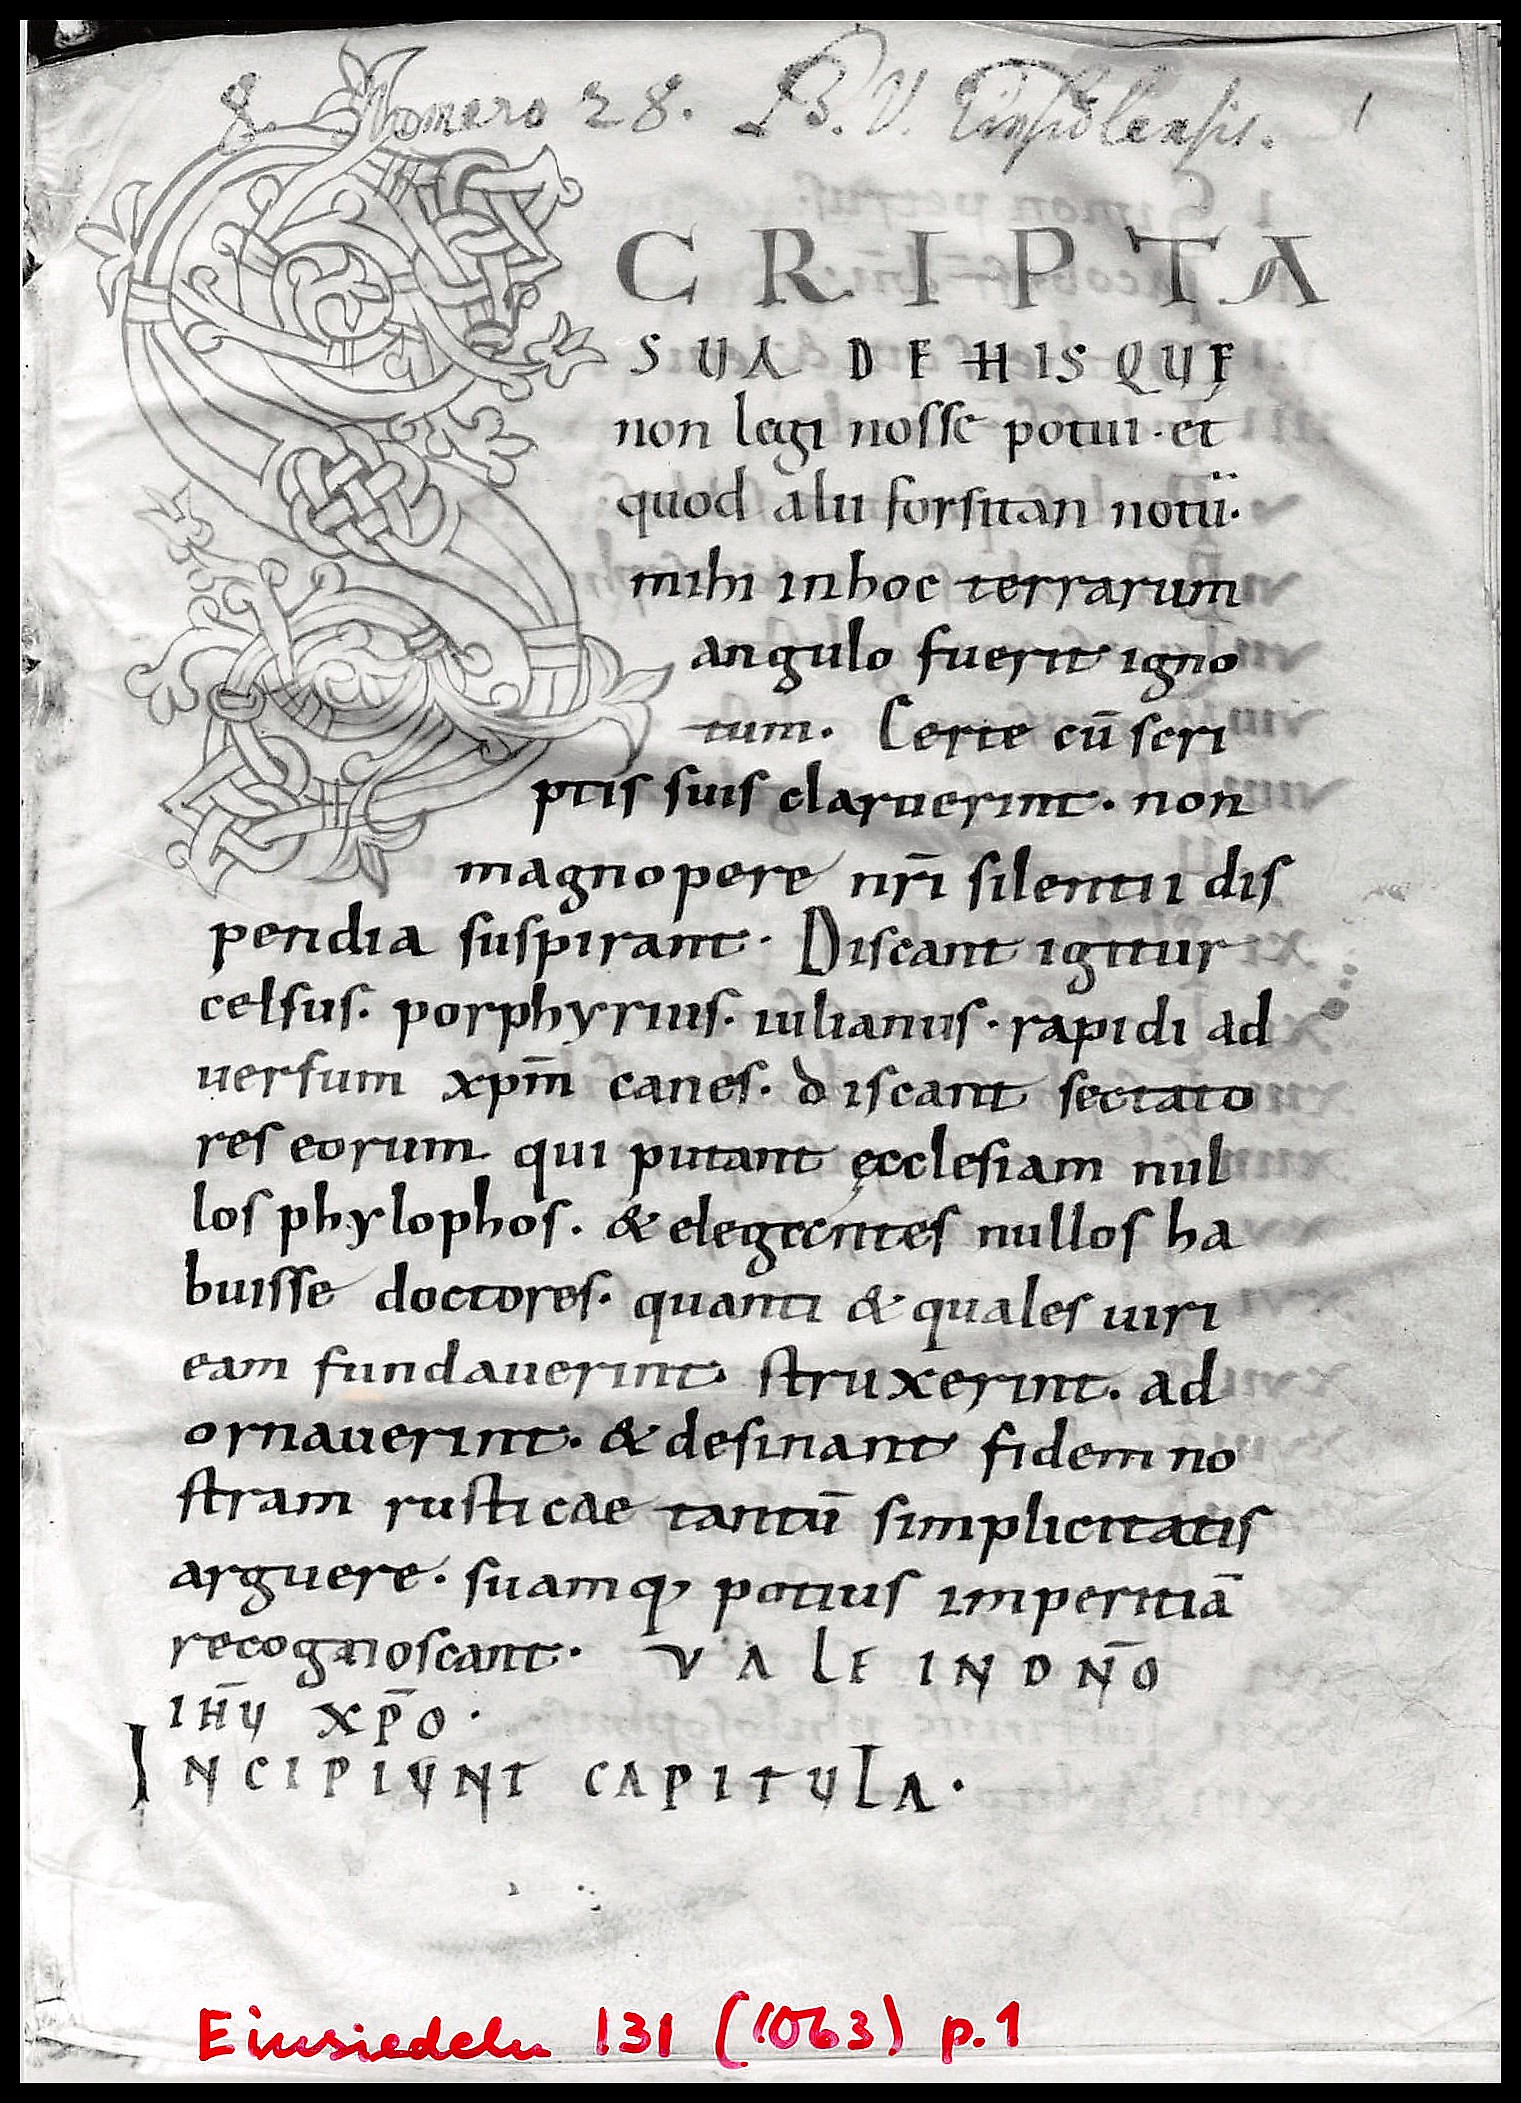 8. Numero 28. B. V. Einsidlensis. 1
SCRIPTA
SUA DE HIS QUĘ
non legi nosse potui · et
quod alii forsitan notṻ·
mihi in hoc terrarum
angulo fuerit igno
tum. Certe cū scri
ptis suis claruerint. non
magnopere nr̄i silentii dis
pendia suspirant. Discant igitur
celsus. porphyrius. iulianus. rapidi ad
uersum xpm̄ canes. discant sectato
res eorum qui putant ęcclesiam nul
los phylophos. & elegentes nullos ha
buisse doctores. quanti & quales uiri
eam fundauerint. struxerint. ad
ornauerint. & desinant fidem no
stram rusticae tantū simplicitatis
arguere. suamq, potius imperitiā
recognoscant. VALE IN DN̄O
IH̄U XP̄O.
INCIPIUNT CAPITULA.
Einsiedeln 131 (1063) p. 1